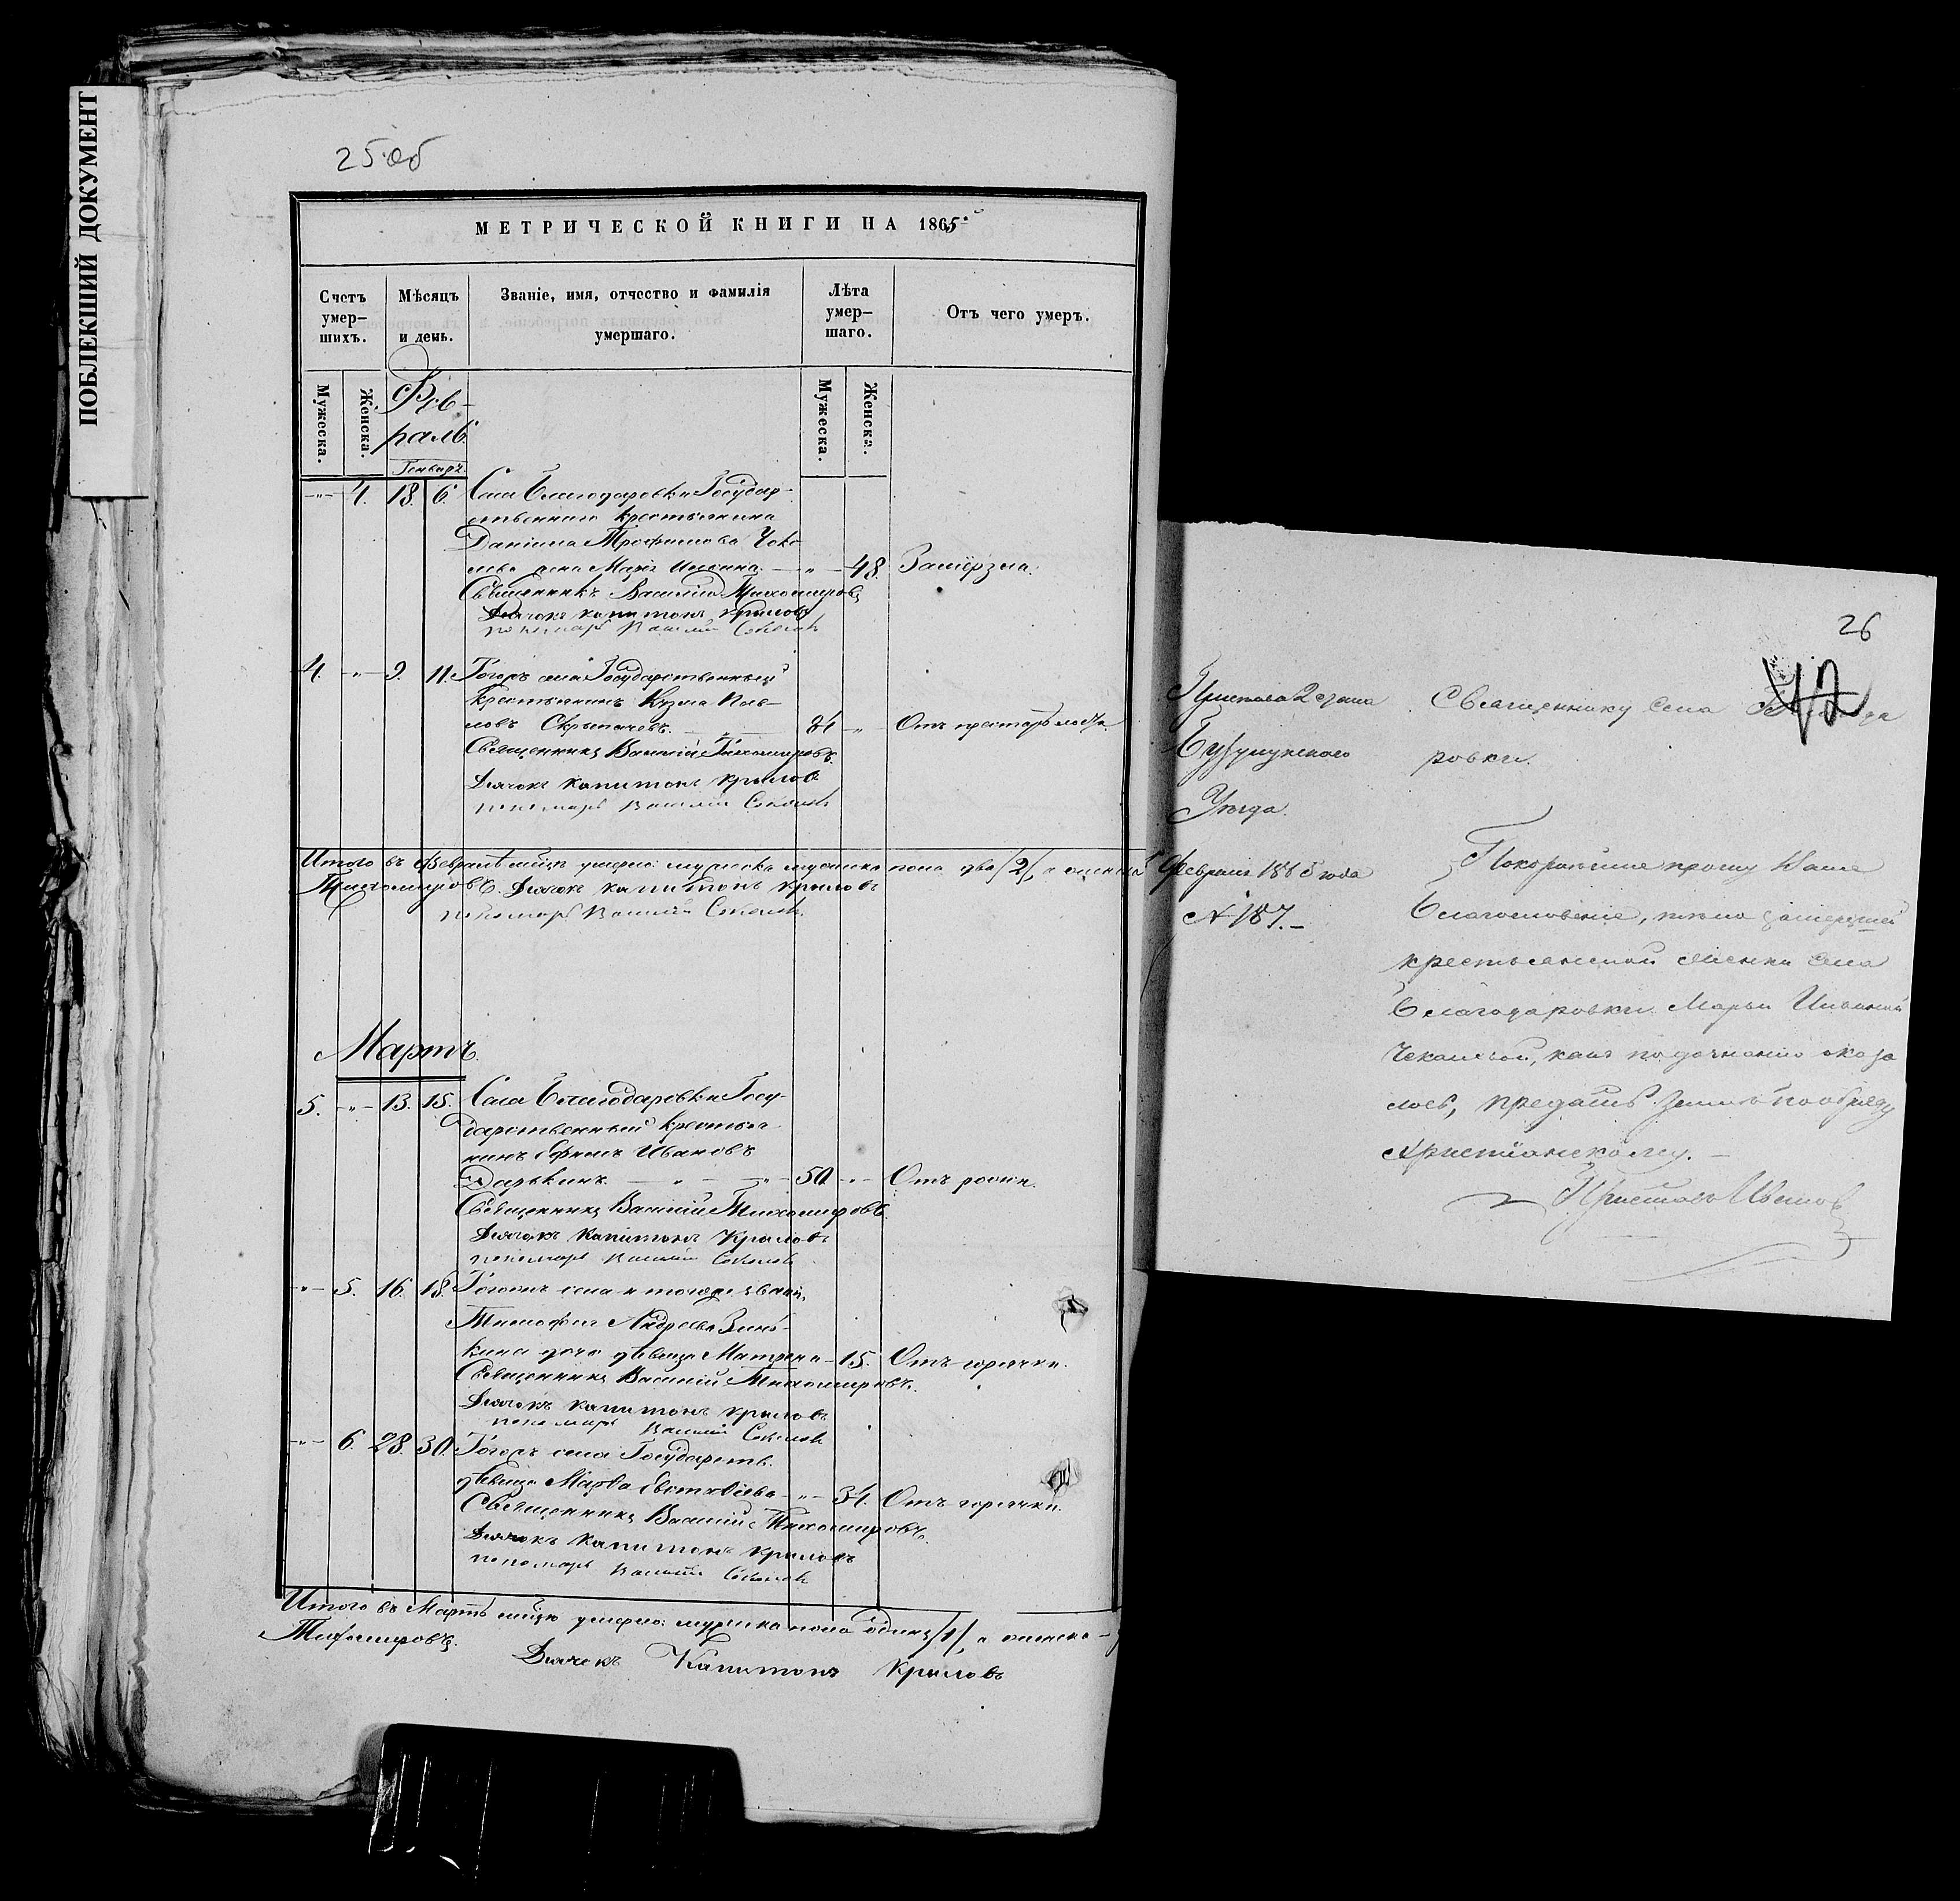 ПОБЛЕКШИЙ ДОКУМЕНТ
25 об
МЕТРИЧЕСКОЙ КНИГИ НА 1865
Счетъ умер-шихъ.
Мѣсяцъ и день.
Званіе, имя, отчество и фамилія умершаго.
Лѣта умер-шаго.
Отъ чего умеръ.
Мужеска.
Женска.
Фев-
раль
Генварь.
Мужеска.
Женска.
-"- 4. 18. 6. Села Благодаровки Государ-
ственнаго крестьянина
Даніила Трофимова Чека-
лева жена Марія Ильина. - " - 48. Замерзла.
Священникъ Василій Тихомировъ
Дьячокъ Капитонъ Крыловъ
пономарь Василий Соколовъ
4. -"- 9. 11. Тогожъ села Государственный
крестьянинъ Кузма Пав-
ловъ 81 -"- Отъ престарѣлости.
Священникъ Василій Тихомировъ.
Дьячокъ Капитонъ Крыловъ
пономарь Василий Соколовъ
Итого въ Февралѣ мѣсяцѣ умерло: мужеска пола два /2/, а женска
Тихомировъ. Дьячокъ Капитонъ Крыловъ
пономарь Василий Соколовъ
Мартъ.
5. -"- 13. 15. Села Благодаровки Госу-
дарственный крестья-
нинъ Ефимъ Ивановъ
Дарькинъ. - " - " - 50 -"- Отъ
Священникъ Василій Тихомировъ.
Дьячокъ Капитонъ Крыловъ
пономарь Василий Соколовъ
-"- 5. 16. 18. Тогожъ села и тогоже званія
Тимофея Андреева Зинь-
кина дочь дѣвица Матрена - 15. Отъ горячки.
Священникъ Василій Тихомировъ.
Дьячокъ Капитонъ Крыловъ
пономарь Василий Соколовъ
-"- 6. 28. 30. Тогожъ села Государств.
дѣвица Марѳа Евстафіева -"- 34. Отъ горячки.
Священникъ Василій Тихомировъ.
Дьячокъ Капитонъ Крыловъ
пономарь Василий Соколовъ
Итого въ Мартѣ мѣсяцѣ умерло: мужеска пола одинъ /1/, а женска -
Тихомировъ.
Дьячокъ Капитонъ Крыловъ
26
42
Пристава 2 стана
Бузулукскаго
Уѣзда.
Февраля 1865 года
№ 187. -
Священнику села Благода
ровки.
Покорнѣйше прошу Ваше
Благословеніе, тѣло замерзшей
крестьянской женки села
Благодаровки Марьи Ильиной
Чекалевой, какъ по дознанію оказа
лось, предать землѣ по обряду
Христіанскому. -
Приставъ